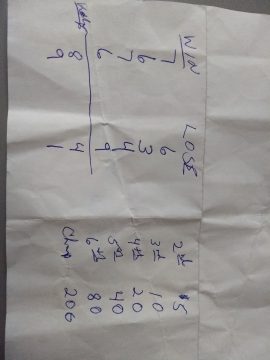 WIN LOSE
7 6 2nd $5
6 3 3rd 10
7 4 4th 20
6 9 5th 40
6th 80
8 4 200
9 1